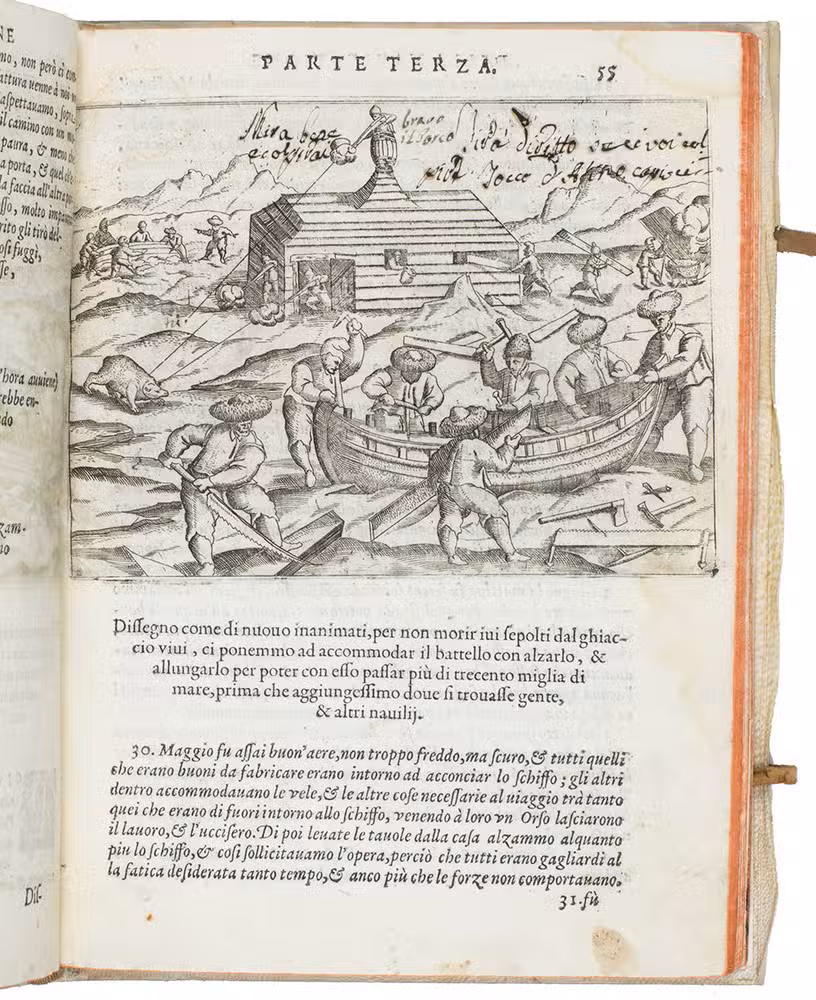 NE
no, non però ci
venne à noi
aspettauamo,
il camino con un
paura, & meno che
a porta, & quel
la faccia all'altra
sso, molto
rito gli tirò del-
così fuggì,
se,
'hora auuiene)
rebbe en-
do
zam-
no
Dis-
PARTE TERZA.
55
Mira bene
brauo
il Porco
diritto se voi
Dissegno come di nuouo inanimati, per non morir iui sepolti dal ghiac-
cio viui, ci ponemmo ad accommodar il battello con alzarlo, &
allungarlo per poter con esso passar più di trecento miglia di
mare, prima che aggiungessimo doue si trouasse gente,
& altri nauilij.
30. Maggio fu assai buon'aere, non troppo freddo, ma scuro, & tutti quelli
che erano buoni da fabricare erano intorno ad acconciar lo schiffo; gli altri
dentro accommodauano le vele, & le altre cose necessarie al uiaggio trà tanto
quei che erano di fuori intorno allo schiffo, venendo à loro vn Orso lasciarono
il lauoro, & l'uccisero. Di poi leuate le tauole dalla casa alzammo alquanto
piu lo schiffo, & cosi sollicitauamo l'opera, perciò che tutti erano gagliardi al
la fatica desiderata tanto tempo, & anco più che le forze non comportauano.
31. fù